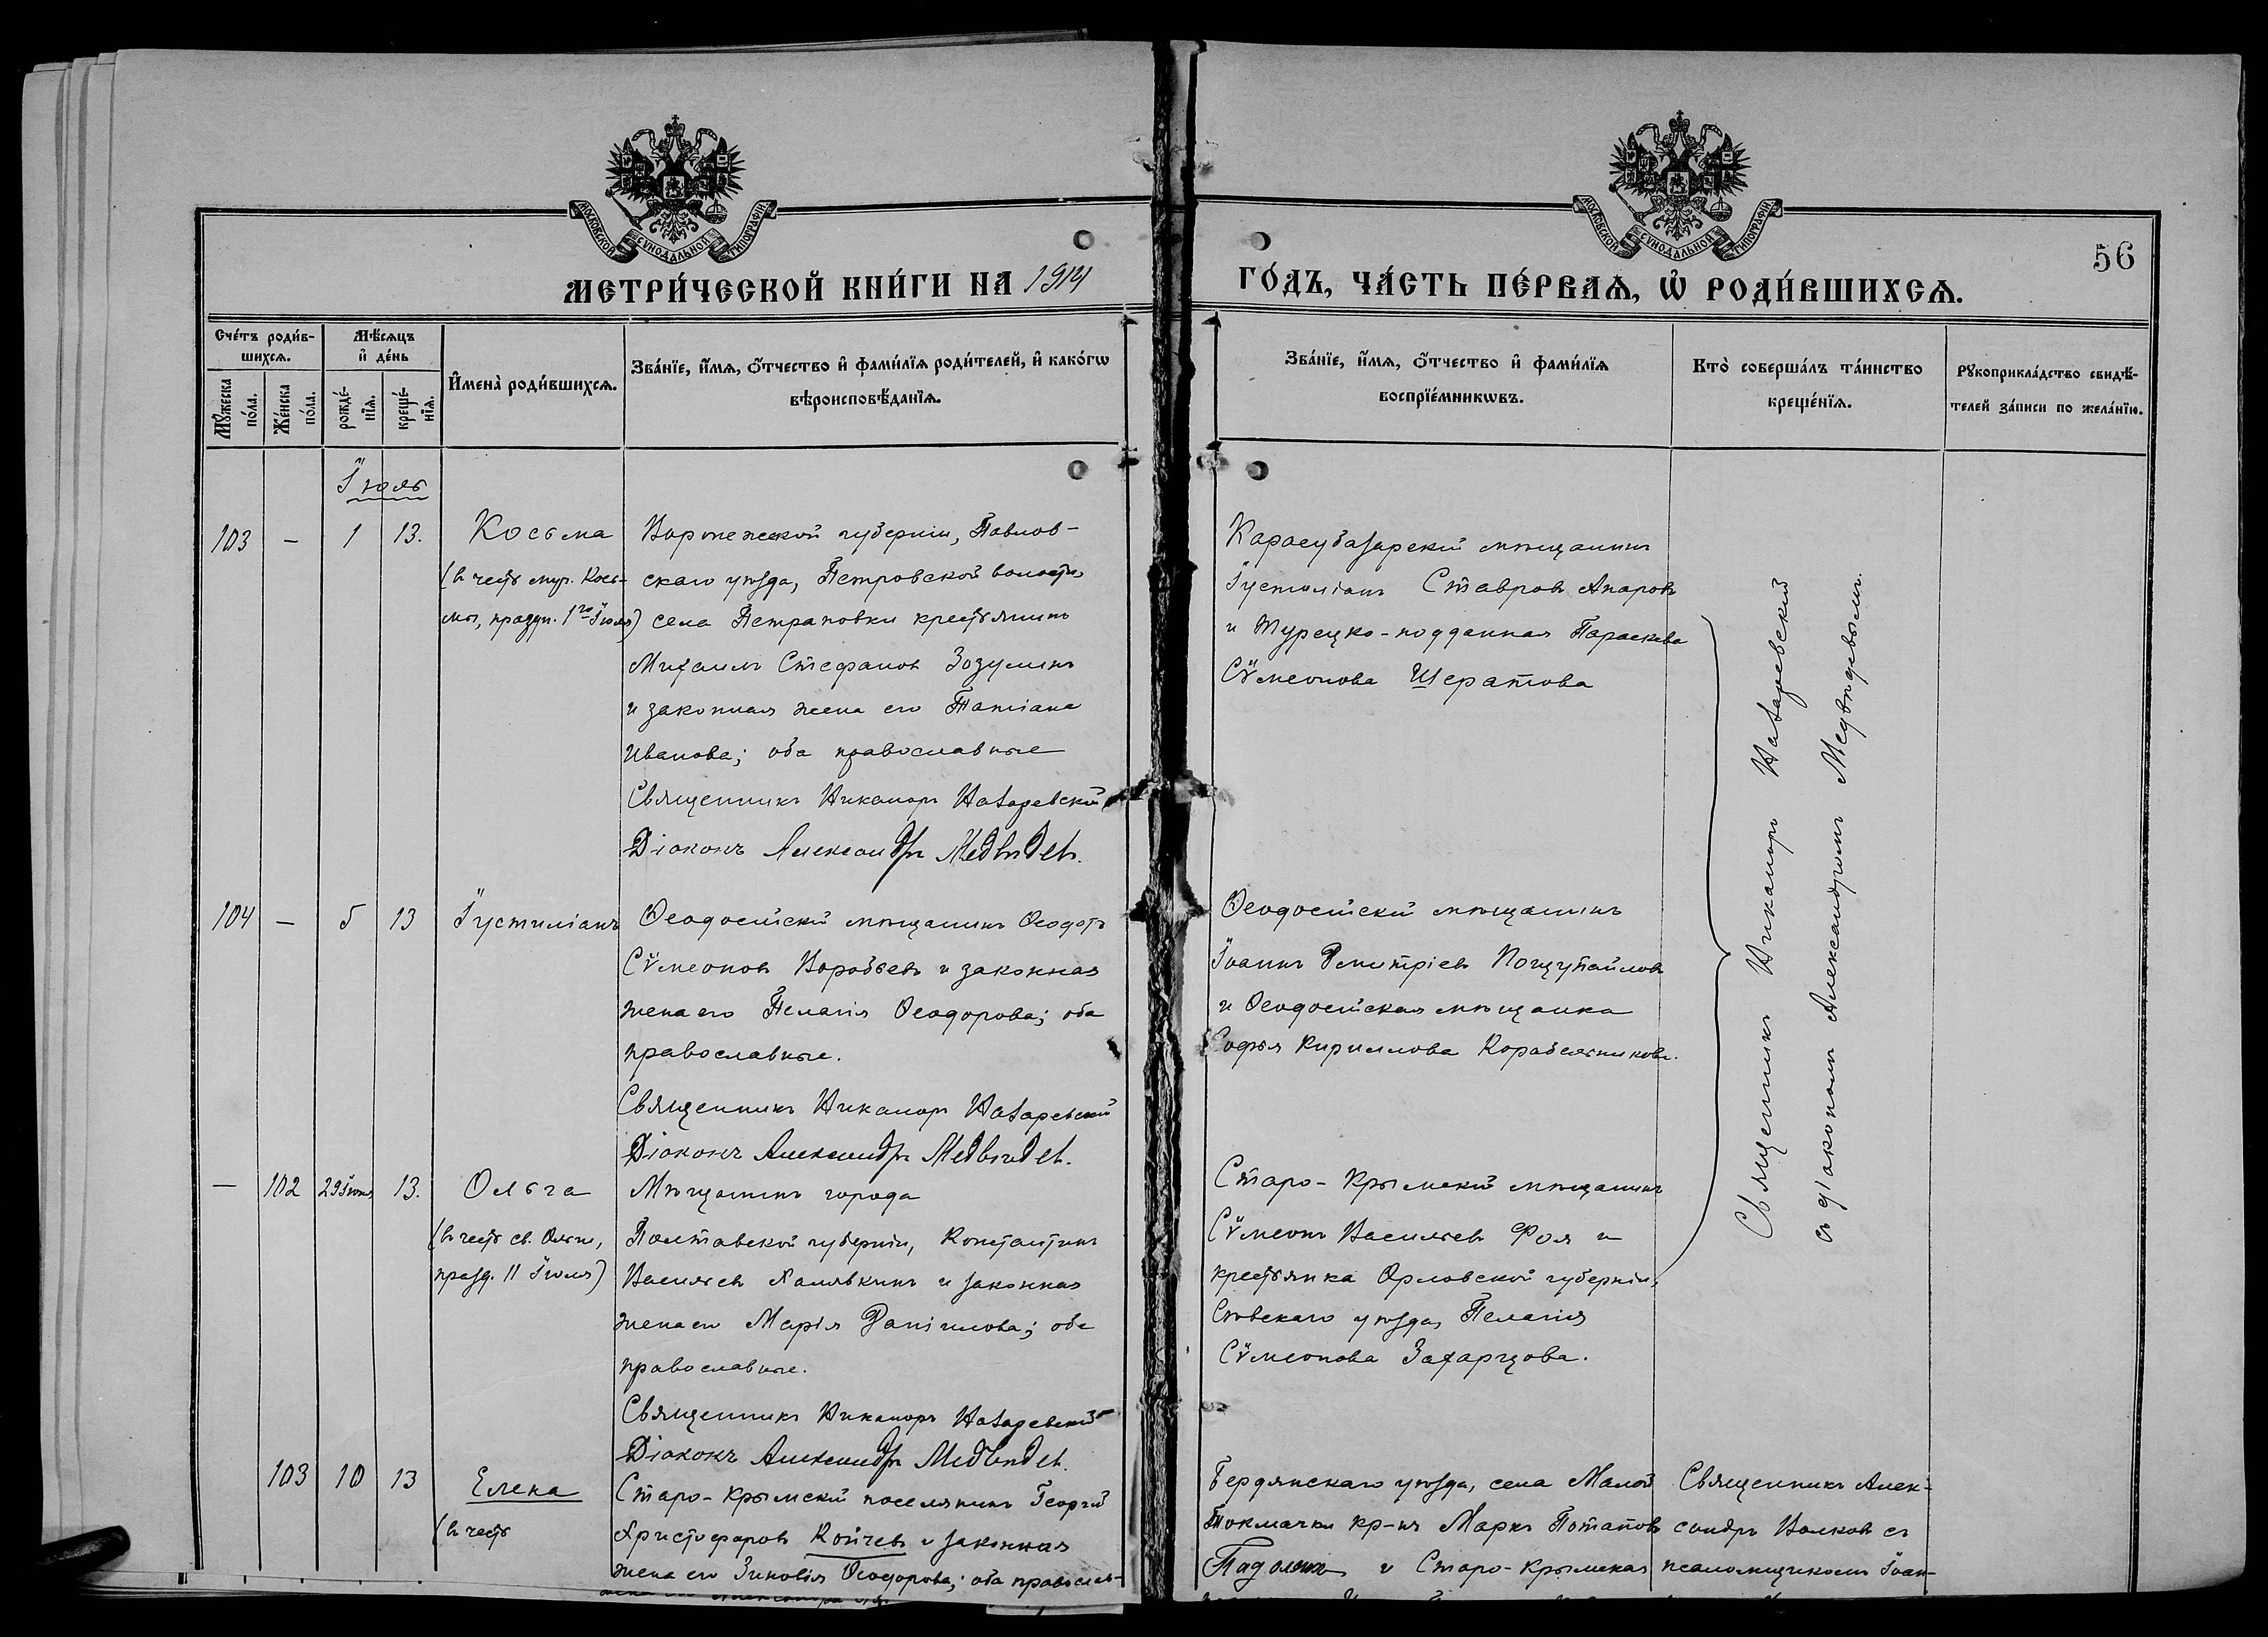 МОСКОВСКОЙ СѴНОДАЛЬНОЙ ТИПОГРАФІИ
МОСКОВСКОЙ СѴНОДАЛЬНОЙ ТИПОГРАФІИ
56
МЕТРИ́ЧЕСКОЙ КНИ́ГИ НА 1914 ГО́ДЪ, ЧА́СТЬ ПЕ́РВАѦ, Ѡ҆ РОДИ́ВШИХСѦ.
Сче́тъ роди́в-
шихсѧ.
Мѣ́сѧцъ
и҆ де́нь
Мꙋ́жеска
по́ла.
Же́нска
по́ла.
рожде́-
нїѧ.
креще́-
нїѧ.
И҆мена̀ роди́вшихсѧ.
Зва́нїе, и҆́мѧ, ѻ҆́тчество и҆ фами́лїѧ роди́телей, и҆ како́гѡ
вѣроисповѣ́данїѧ.
Зва́нїе, и҆́мѧ, ѻ҆́тчество и҆ фами́лїѧ
воспрїе́мникѡвъ.
Кто̀ соверша́лъ та́инство
креще́нїѧ.
Рꙋкоприкла́дство свидѣ́-
телей за́писи по жела́нїю.
Іюль
103 — 1 13. Косьма
(въ честь муч. Кось-
мы, праздн. 1го Іюля)
Воронежской губерніи, Павлов-
скаго уѣзда, Петровской волости,
села Петровки крестьянинъ
Михаилъ Стефановъ Зозулинъ
и законная жена его Татіана
Иванова; оба православные
Священникъ Никаноръ Назаревскій
Діаконъ Александръ Медвѣдевъ.
Карасубазарскій мѣщанинъ
Іустиліанъ Ставровъ Апаровъ
и Турецко-подданная Параскева
Сѵмеонова Шератова
104 — 5 13 Іустиліанъ
Ѳеодосійскій мѣщанинъ Ѳеодотъ
Сѵмеоновъ Воробьевъ и законная
жена его Пелагія Ѳеодорова; оба
православные.
Священникъ Никаноръ Назаревскій
Діаконъ Александръ Медвѣдевъ.
Ѳеодосійскій мѣщанинъ
Іоаннъ Дмитріевъ Пощупайловъ
и Ѳеодосійская мѣщанка
Софья Кириллова Корабельникова.
— 102 29 Іюня 13. Ольга
(въ честь св. Ольги,
празд. 11 Іюля)
Мѣщанинъ города
Полтавской губерніи, Константинъ
Васильевъ Халявкинъ и законная
жена его Марія Даніилова; оба
православные.
Священникъ Никаноръ Назаревскій
Діаконъ Александръ Медвѣдевъ.
Старо-Крымскій мѣщанинъ
Сѵмеонъ Васильевъ Фоя и
крестьянка Орловской губерніи,
уѣзда, Пелагія
Сѵмеонова Захарцова.
Священникъ Никаноръ Назаревскій
съ діакономъ Александромъ Медвѣдевымъ.
103 10 13 Елена
(въ честь
Старо-Крымскій поселянинъ Георгій
Христофоровъ Койчевъ и законная
жена его Зиновія Ѳеодорова; оба православ-
Бердянскаго уѣзда, села Малой
Токмачки кр-нъ Маркъ Потаповъ
и Старо-Крымская
Священникъ Алек-
сандръ Волковъ съ
псаломщикомъ Іоан-